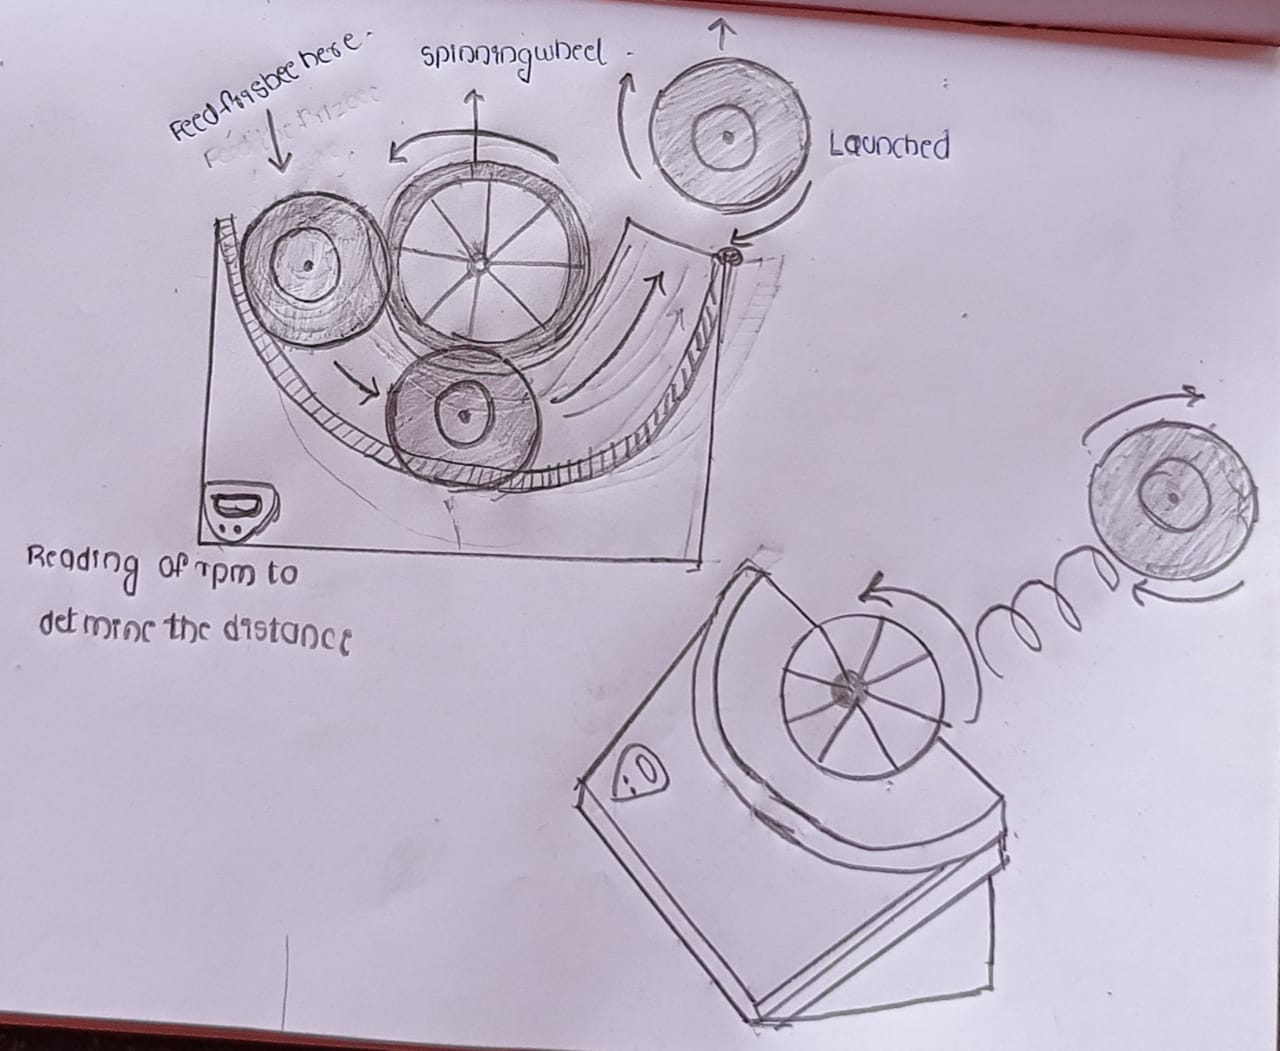 Feed frisbee here.
spinning wheel
Launched
Reading of rpm to
detmine the distance